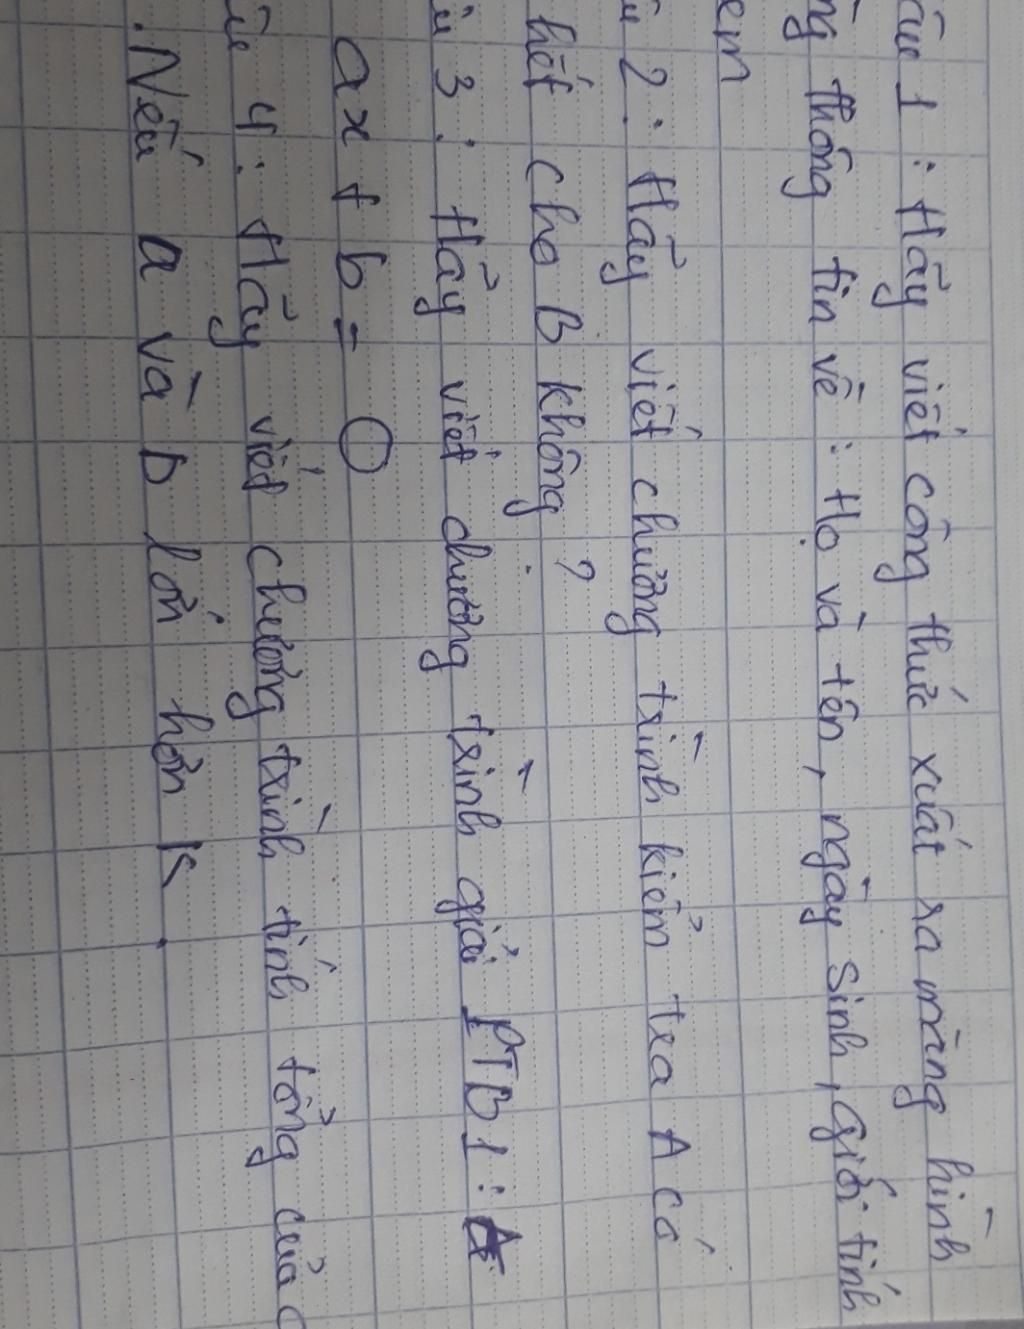 Câu 1 : Hãy viết công thức xuất ra màng hình
thông tin về : Họ và tên, ngày Sinh, giới tính
em
2 : Hãy viết chương trình kiểm tra A có
hết cho B không ?
3 : Hãy viết chương trình giải PTB1 :
ax + b = 0
4 : Hãy viết chương trình tính tổng của
. Nếu a và b lớn hơn K .